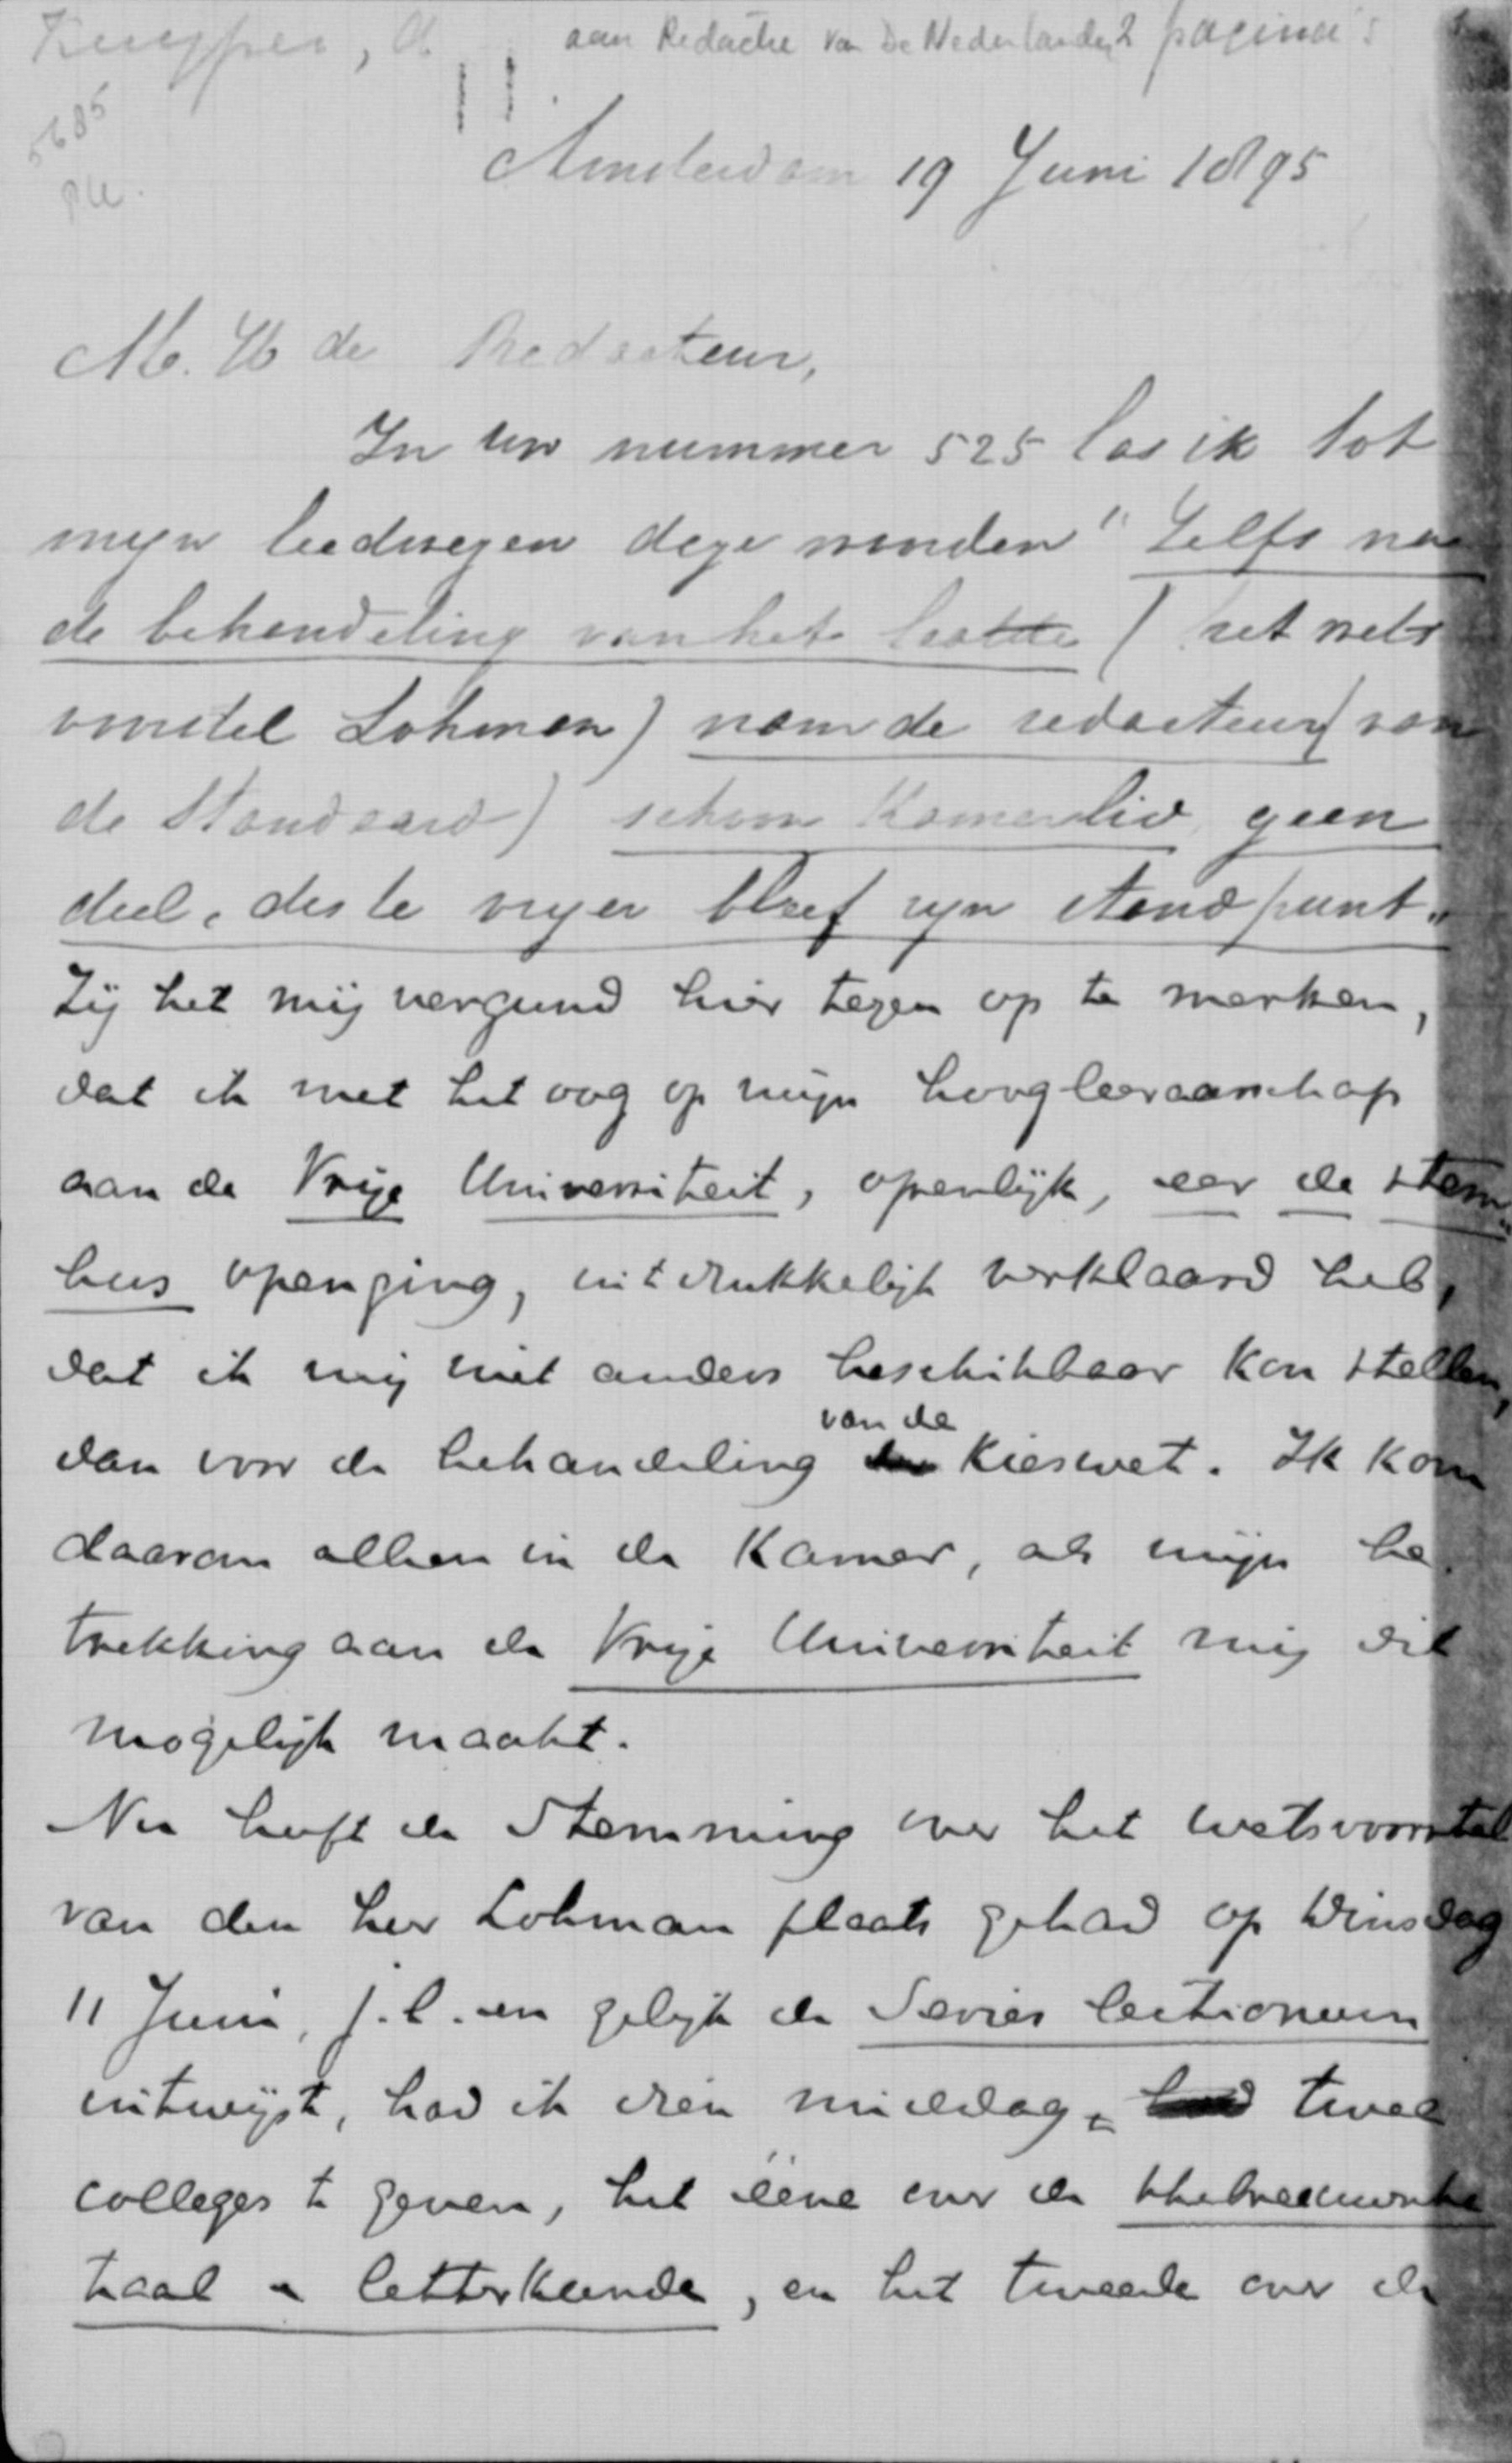 Kuyper, A aan Redactie van De Nederlander 2 pagina's
5685
Amsterdam 19 Juni 1895
M. H de Redacteur,
In uw nummer 525 las ik tot
mijn leedwezen deze woorden "Zelfs na
de behandeling van het laatste ( het wets
voorstel Lohman) nam de redacteur (van
de Standaard) schoon Kamerlid, geen
deel, des te vrijer bleef zijn standpunt."
Zij het mij vergund hier tegen op te merken,
dat ik met het oog op mijn hoogleeraarschap
aan de Vrije Universiteit, openlijk, eer de stem-
bus openging, uitdrukkelijk verklaard heb,
dat ik mij niet anders beschikbaar kon stellen,
dan voor de behandeling van de Kieswet. Ik kom
daarom alleen in de Kamer, als mijn be
trekking aan de Vrije Universiteit mij dit
mogelijk maakt.
Nu heeft de Stemming over het wetsvoorstel
van den heer Lohman plaats gehad op Dinsdag
11 Juni, j.l. en gelijk de Series lectionum
uitwijst, had ik dien middag twee
colleges te geven, het ééne over de Hebreeuwsche
taal en letterkunde, en het tweede over de